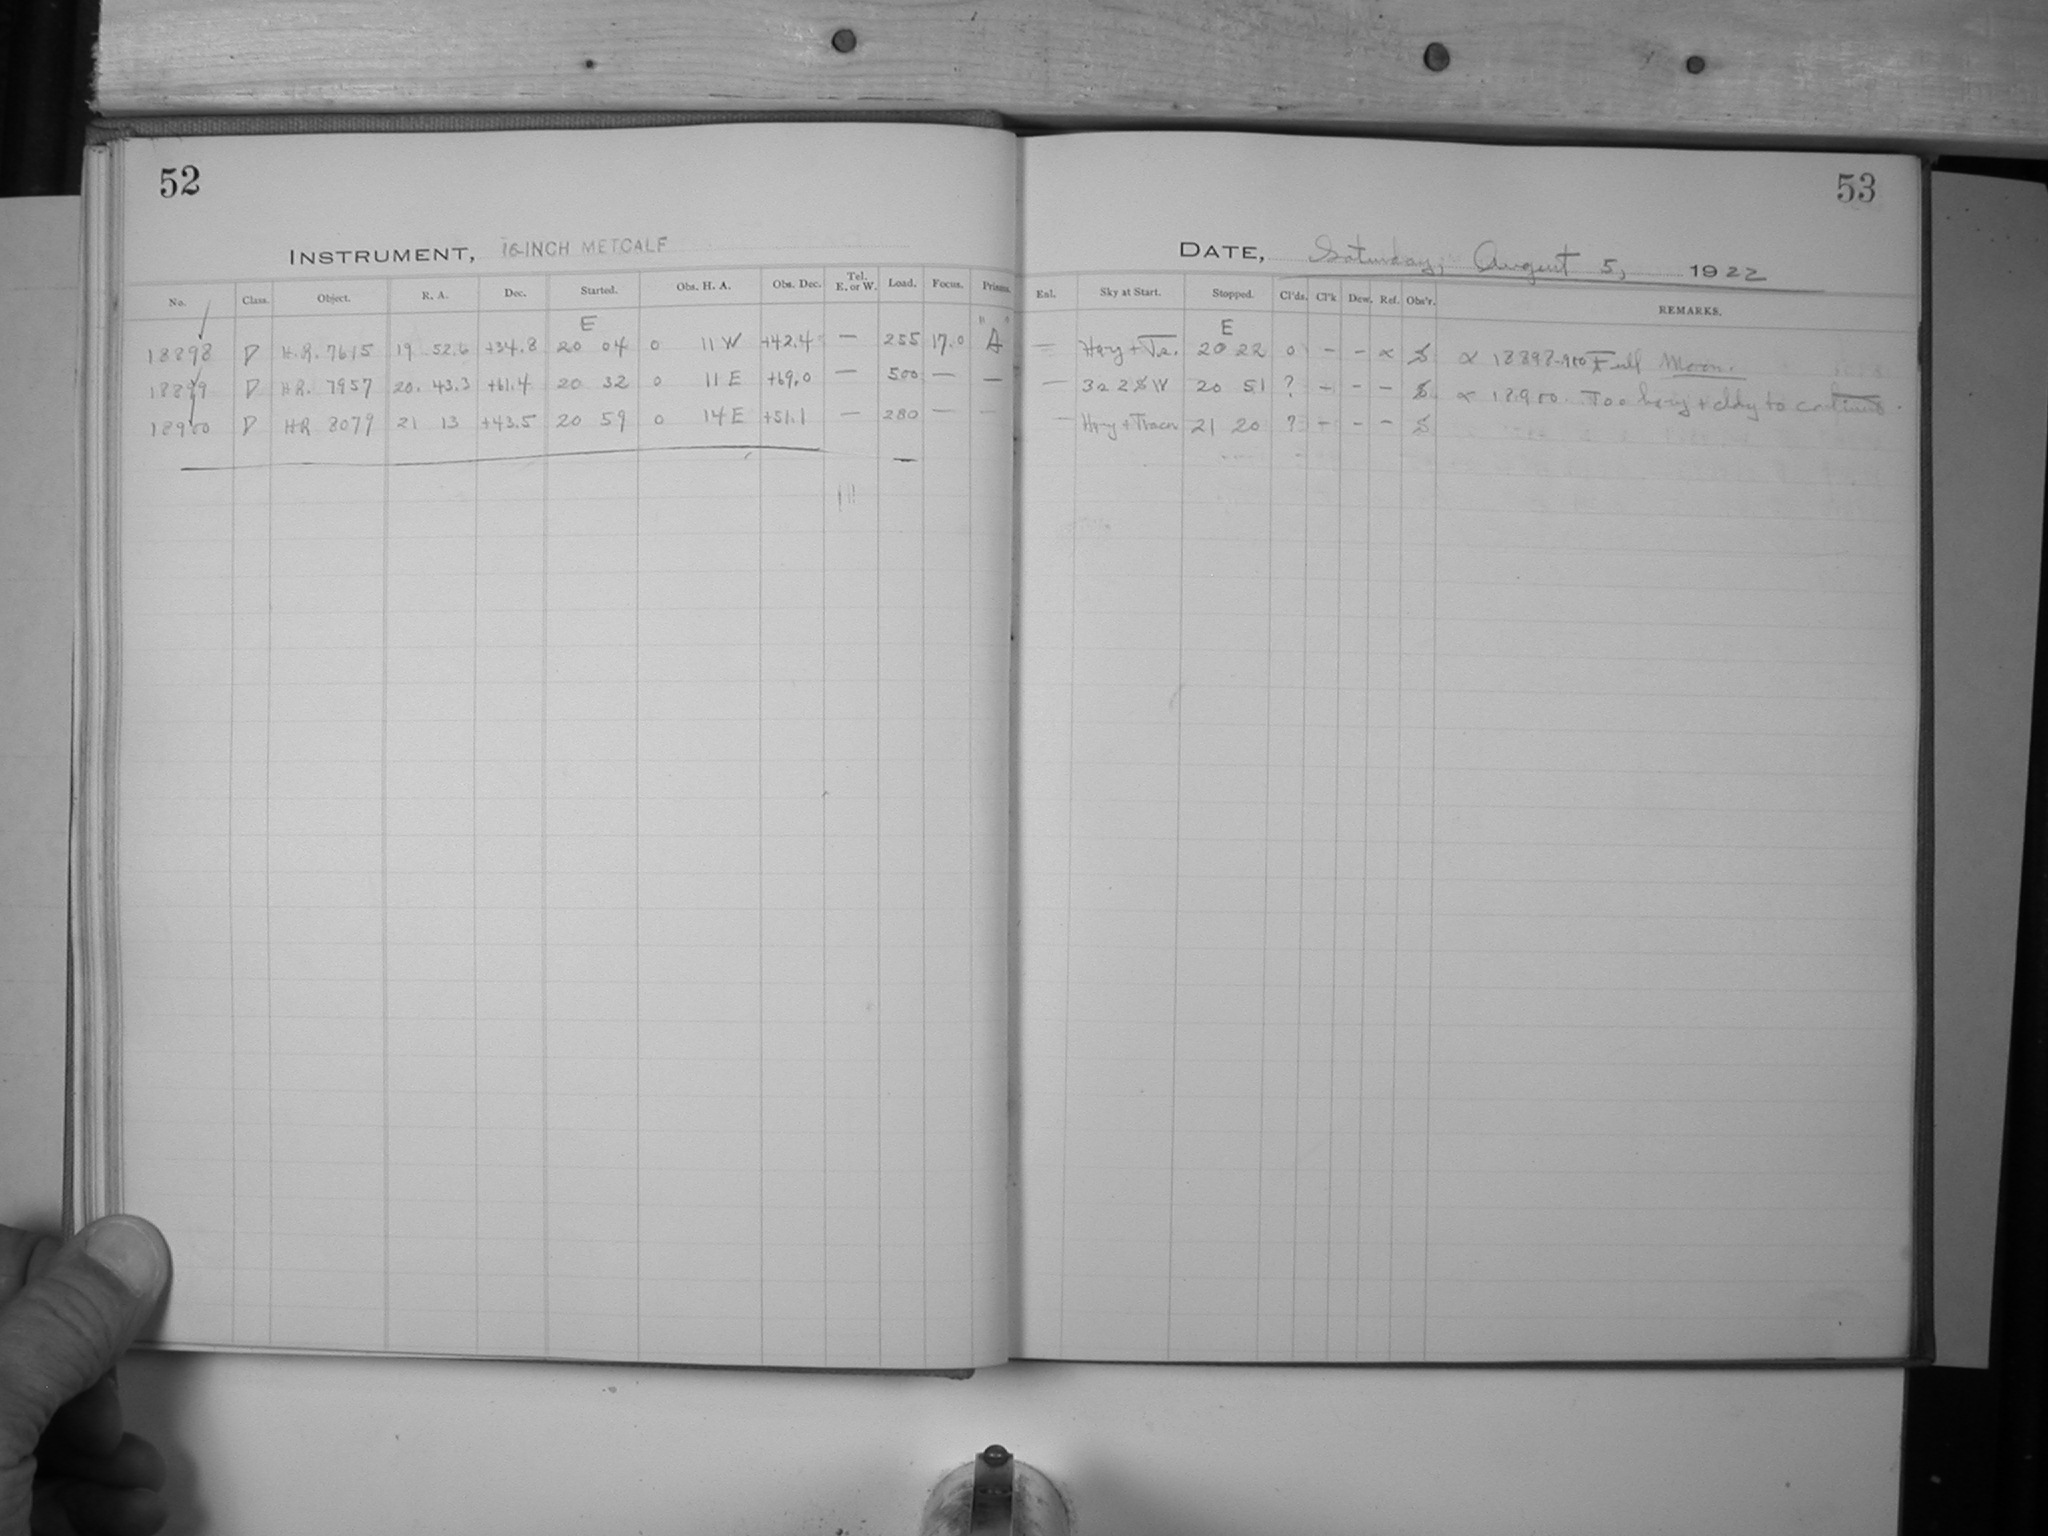 52
INSTRUMENT, 16-INCH METCALF
No. Class. Object. R. A. Dec. Started. Obs. H. A. Obs. Dec. Tel. E. or W. Load. Focus. Prisms.
E
18898 D H.R. 7615 19 52.6 +34.8 20 04 0 11 W +42.4 — 255 17.0 "A"
18899 D H.R. 7957 20. 43.3 +61.4 20 32 0 11 E +69.0 — 500 — —
18900 D HR 8079 21 13 +43.5 20 59 0 14 E +51.1 — 280 — —
53
DATE, Saturday, August 5, 1922
Enl. Sky at Start. Stopped. Cl'ds. Cl'k Dew. Ref. Obs'r. REMARKS.
E
— Hazy + Tr. 20 22 0 - - α α 18898-900 Full Moon.
— 20 51 ? - - - α 18900. Too hazy + cldy to continue.
— Hazy + 21 20 ? - - -